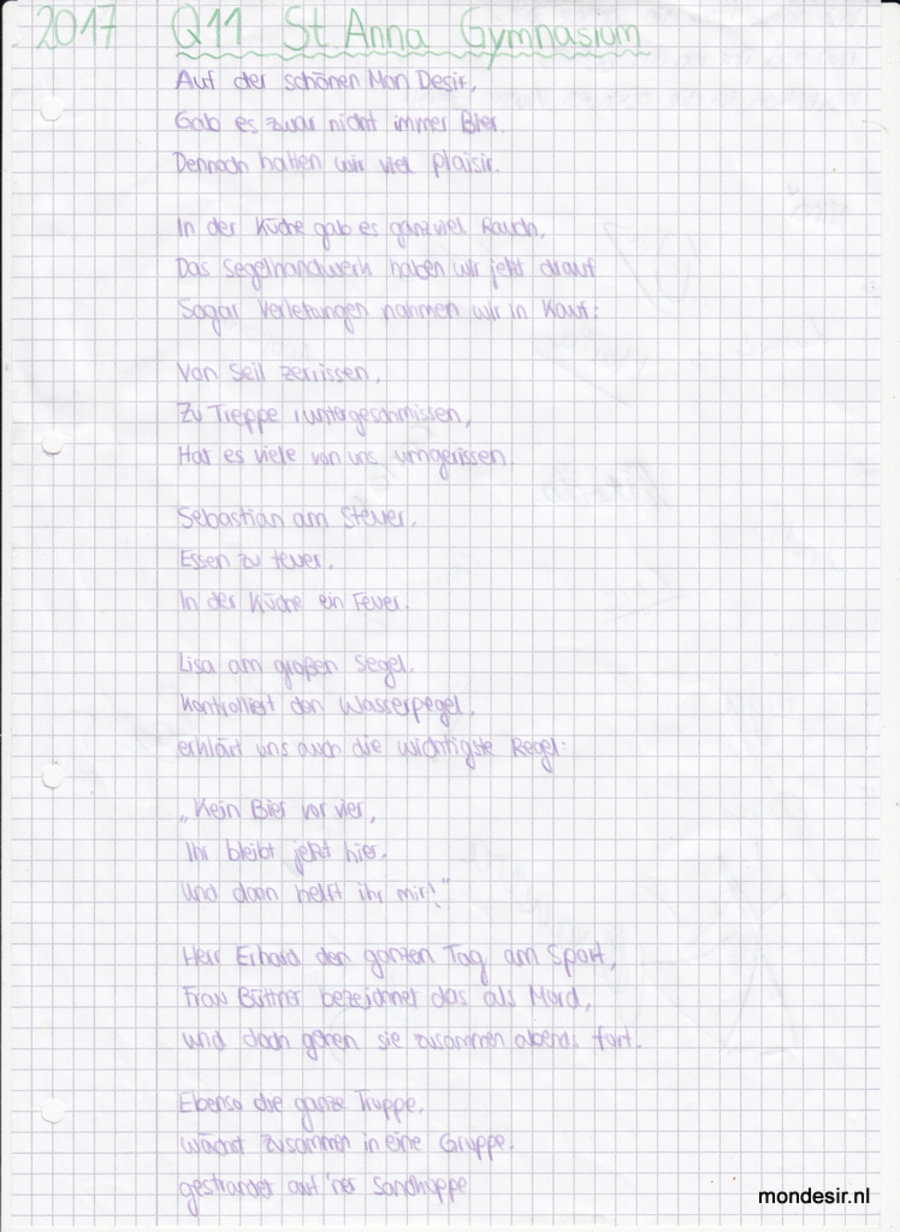 2017 Q11 St Anna Gymnasium
Auf der schönen Mon Desir,
Gab es zwar nicht immer Bier.
Dennoch hatten wir viel plaisir.
In der Küche gab es ganz viel Rauch,
Das Segelhandwerk haben wir jetzt drauf
Sogar Verletzungen nahmen wir in Kauf:
Von Seil zerrissen,
Zu Treppe runtergeschmissen,
Hat es viele von uns umgerissen.
Sebastian am Steuer,
Essen zu teuer,
In der Küche ein Feuer.
Lisa am großen Segel,
Kontrolliert den Wasserpegel,
erklärt uns auch die wichtigste Regel:
„Kein Bier vor vier,
Ihr bleibt jetzt hier,
Und dann helft ihr mir!"
Herr Erhard den ganzen Tag am Sport,
Frau Büttner bezeichnet das als Mord,
und doch gehen sie zusammen abends fort.
Ebenso die ganze Truppe,
Wächst zusammen in eine Gruppe.
gestrandet auf 'ner Sandhuppe
mondesir.nl